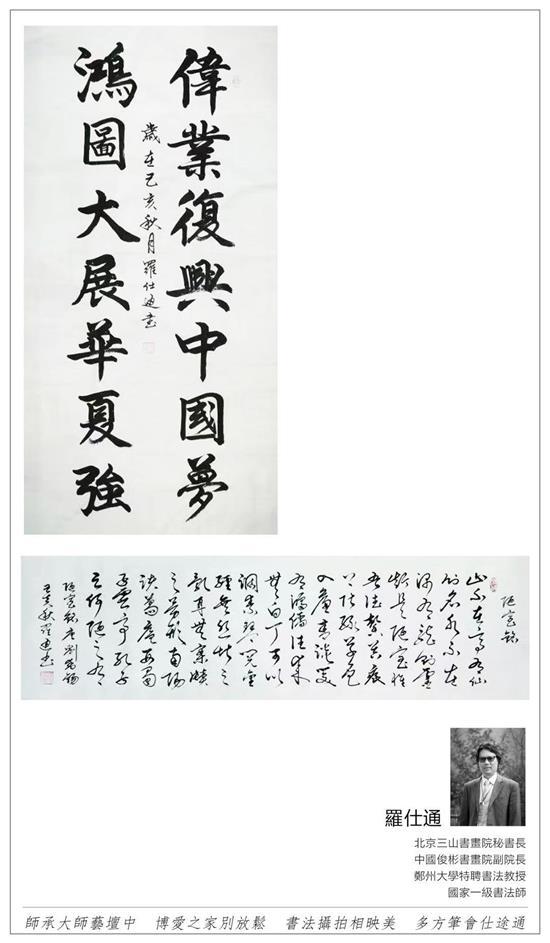 偉業復興中國夢
歲在己亥秋月羅仕通書
鴻圖大展華夏強
陋室銘
山不在高有仙
則名水不在
深有龍則靈
斯是陋室惟
吾德馨苔痕
上階綠草色
入簾青談笑
有鴻儒往來
無白丁可以
調素琴閱金
經無絲竹之
亂耳無案牘
之勞形南陽
諸葛廬西蜀
子雲亭孔子
云何陋之有
陋室銘唐劉禹錫
己亥秋羅通書
羅仕通
北京三山書畫院秘書長
中國俊彬書畫院副院長
鄭州大學特聘書法教授
國家一級書法師
師承大師藝壇中 博愛之家別放鬆 書法攝拍相映美 多方筆會仕途通